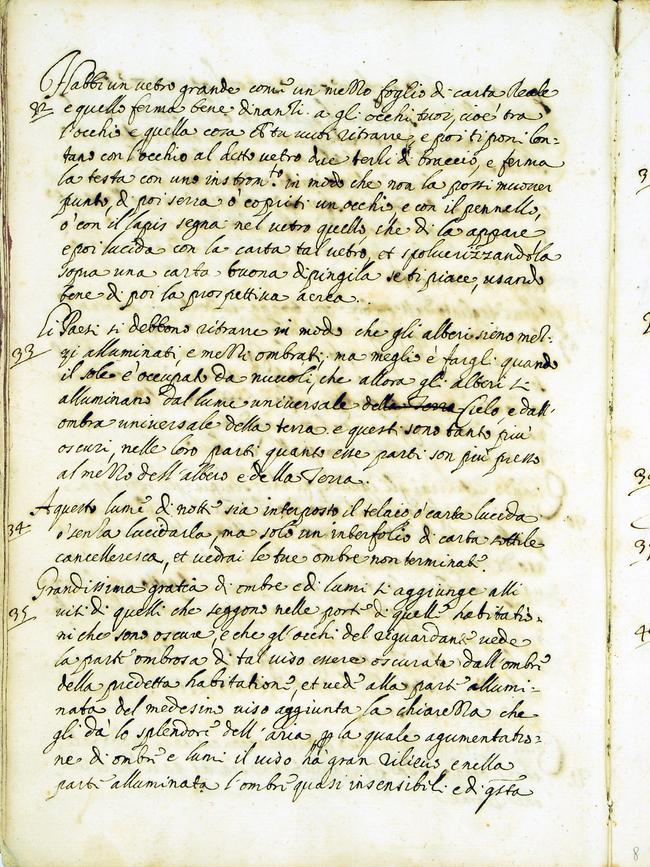 Habbi un vetro grande come un mezzo foglio di carta Reale
32
e quello ferma bene dinanzi a gli occhi tuoi, cioè tra
l'occhio e quella cosa che tu vuoi ritrarre, e poi ti poni lon-
tano con l'occhio al detto vetro due terzi di braccio, e ferma
la testa con uno instrom.to in modo che non la possi muover
punto, di poi serra ò copriti un occhio e con il pennello,
ò con il lapis segna nel vetro quello che di là appare
e poi lucida con la carta tal vetro, et spolverizzandola
sopra una carta buona dipingila se ti piace, usando
bene di poi la prospettiva aerea.
Li Paesi si debbono ritrarre in modo che gli alberi sieno mez-
33
zi alluminati, e mezzi ombrati: ma meglio è fargli quando
il sole è occupato da nuvoli, che allora gli alberi si
alluminano dal lume universale della Terra Cielo, e dall'
ombra universale della terra, e questi sono tanto più
oscuri, nelle loro parti, quanto esse parti son più presso
al mezzo dell'albero e della Terra.
A questo lume di notte sia interposto il telaio ò carta lucida
34
ò senza lucidarla, ma solo un interfolio di carta sottile
cancelleresca, et vedrai le tue ombre non terminate.
Grandissima gratia di ombre e di lumi si aggiunge alli
35
visi di quelli che seggono nelle porte di quelle habitatio-
ni che sono oscure, e che gl'occhi del riguardante vede
la parte ombrosa di tal viso essere oscurata dall'ombre
della predetta habitatione, et vede alla parte allumi-
nata del medesimo viso aggiunta la chiarezza che
gli dà lo splendore dell'aria, p la quale agumentatio-
ne di ombre e lumi il viso hà gran rilievo, e nella
parte alluminata l'ombre quasi insensibili: e di qsta
8